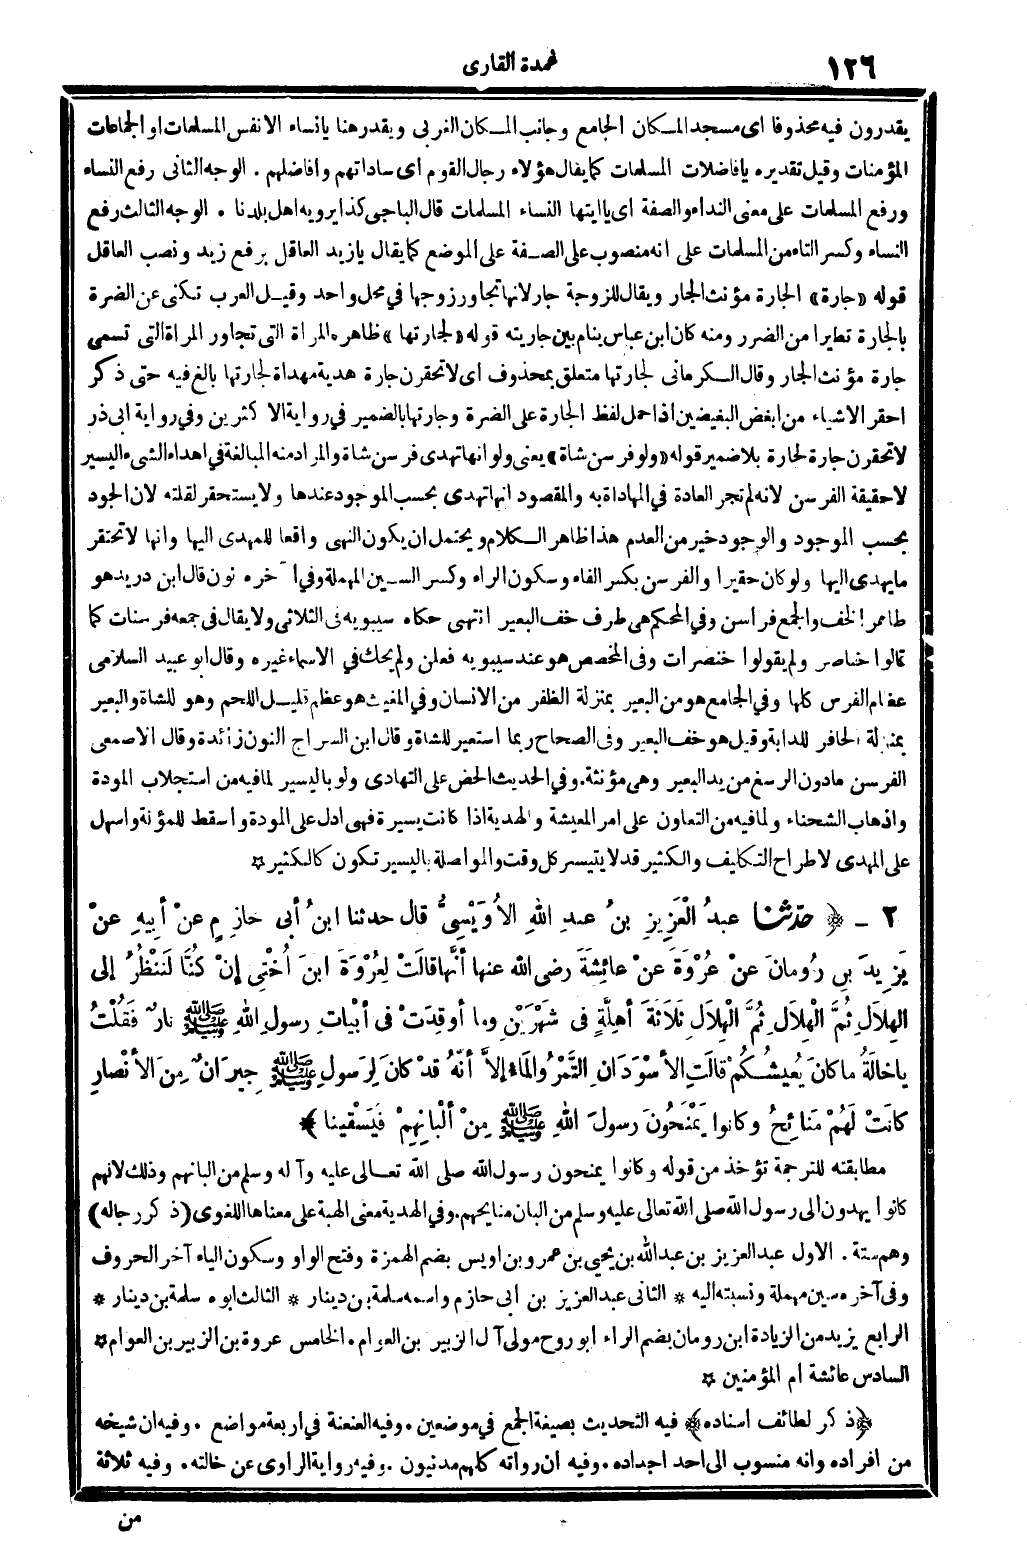 ١٢٦
عمدة القارى
يقدرون فيه محذوفا اى مسجد المكان الجامع وجانب المكان الغربى ويقدر هنا يانساء الانفس المسلمات او الجماعات
المؤمنات وقيل تقديره يافاضلات المسلمات كما يقال هؤلاء رجال القوم اى ساداتهم وافاضلهم . الوجه الثانى رفع النساء
ورفع المسلمات على معنى النداء والصفة اى ياايتها النساء المسلمات قال الباجى كذا يرويه اهل بلدنا . الوجه الثالث رفع
النساء وكسر التاء من المسلمات على انه منصوب على الصفة على الموضع كما يقال يازيد العاقل برفع زيد ونصب العاقل
قوله «جارة» الجارة مؤنث الجار ويقال للزوجة جار لانها تجاور زوجها في محل واحد وقيل العرب تكنى عن الضرة
بالجارة تطيرا من الضرر ومنه كان ابن عباس ينام بين جاريته قوله «لجارتها» ظاهره المراة التى تجاور المراة التى تسمى
جارة مؤنث الجار وقال الكرمانى لجارتها متعلق بمحذوف اى لاتحقرن جارة هدية مهداة لجارتها بالغ فيه حتى ذكر
احقر الاشياء من ابغض البغيضين اذا حمل لفظ الجارة على الضرة وجارتها بالضمير في رواية الاكثرين وفي رواية ابى ذر
لاتحقرن جارة لجارة بلا ضمير قوله «ولو فرسن شاة» يعنى ولو انها تهدى فرسن شاة والمراد منه المبالغة في اهداء الشىء اليسير
لاحقيقة الفرسن لانه لم تجر العادة في المهاداة به والمقصود انها تهدى بحسب الموجود عندها ولا يستحقر لقلته لان الجود
بحسب الموجود والوجود خير من العدم هذا ظاهر الكلام ويحتمل ان يكون النهى واقعا للمهدى اليها وانها لاتحتقر
مايهدى اليها ولو كان حقيرا والفرسن بكسر الفاء وسكون الراء وكسر السين المهملة وفي آخره نون قال ابن دريد هو
ظاهر الخف والجمع فراسن وفي المحكم هى طرف خف البعير انتهى حكاه سيبويه فى الثلاثى ولا يقال فى جمعه فرسنات كما
قالوا خناصر ولم يقولوا خنصرات وفى المخصص هو عند سيبويه فعلن ولم يحك في الاسماء غيره وقال ابو عبيد السلامى
عظام الفرس كلها وفي الجامع هو من البعير بمنزلة الظفر من الانسان وفي المغيث هو عظم قليل اللحم وهو للشاة والبعير
بمنزلة الحافر للدابة وقيل هو خف البعير وفى الصحاح ربما استعير للشاة وقال ابن السراج النون زائدة وقال الاصمعى
الفرسن مادون الرسغ من يد البعير وهى مؤنثة . وفي الحديث الحض على التهادى ولو باليسير لما فيه من استجلاب المودة
واذهاب الشحناء ولما فيه من التعاون على امر المعيشة والهدية اذا كانت يسيرة فهى ادل على المودة واسقط للمؤنة واسهل
على المهدى لاطراح التكليف والكثير قد لايتيسر كل وقت والمواصلة باليسير تكون كالكثير ✡
٢ - ﴿ حدّثنا عبدُ الْعَزِيزِ بنُ عبدِ اللهِ الأُوَيْسِىُّ قال حدثنا ابنُ أبى حازِمٍ عنْ أبِيهِ عنْ
يَزِيدَ بنِ رُومانَ عنْ عُرْوَةَ عنْ عائِشَةَ رضى الله عنها أنَّها قالَتْ لِعُرْوَةَ ابنَ أُخْتِى إنْ كُنَّا لَنَنْظُرُ إلى
الهِلاَلِ ثُمَّ الْهِلاَلِ ثُمَّ الْهِلاَلِ ثَلاَثَةَ أهِلَّةٍ فى شَهْرَيْنِ وما أُوقِدَتْ فى أبْياتِ رسولِ اللهِ ﷺ نارٌ فَقُلْتُ
ياخالَةُ ماكانَ يُعِيشُكُمْ قالَتِ الأَسْوَدَانِ التَّمْرُ والمَاءُ إلاَّ أنَّهُ قدْ كانَ لِرَسولِ ﷺ جِيرَانٌ مِنَ الأنْصارِ
كانَتْ لَهُمْ مَنائِحُ وكانوا يَمْنَحُونَ رسولَ اللهِ ﷺ مِنْ ألْبانِهِمْ فَيَسْقِينا ﴾
مطابقته للترجمة تؤخذ من قوله وكانوا يمنحون رسول الله صلى الله تعالى عليه وآله وسلم من البانهم وذلك لانهم
كانوا يهدون الى رسول الله صلى الله تعالى عليه وسلم من البان منايحهم . وفي الهدية معنى الهبة على معناها اللغوى (ذكر رجاله)
وهم ستة . الاول عبد العزيز بن عبدالله بن يحيى بن عمرو بن اويس بضم الهمزة وفتح الواو وسكون الياء آخر الحروف
وفى آخره سين مهملة ونسبته اليه * الثانى عبد العزيز بن ابى حازم واسمه سلمة بن دينار * الثالث ابوه سلمة بن دينار *
الرابع يزيد من الزيادة ابن رومان بضم الراء ابو روح مولى آل الزبير بن العوام . الخامس عروة بن الزبير بن العوام ✡
السادس عائشة ام المؤمنين ✡
﴿ذكر لطائف اسناده﴾ فيه التحديث بصيغة الجمع في موضعين . وفيه العنعنة في اربعة مواضع . وفيه ان شيخه
من افراده وانه منسوب الى احد اجداده . وفيه ان رواته كلهم مدنيون . وفيه رواية الراوى عن خالته . وفيه ثلاثة
من